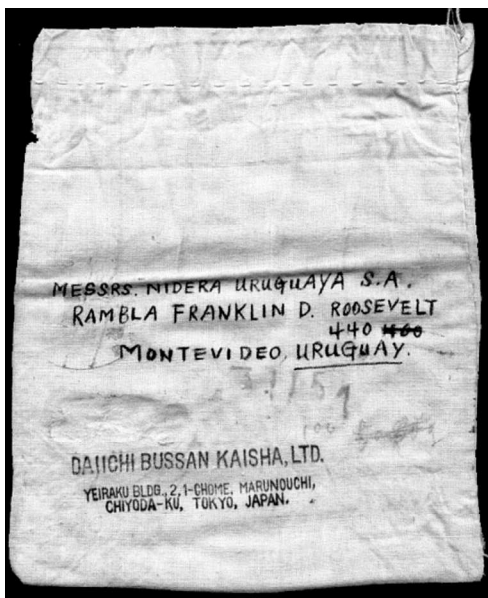 MESSRS. NIDERA URUGUAYA S.A.
RAMBLA FRANKLIN D. ROOSEVELT
440 460
MONTEVIDEO, URUGUAY.
DAIICHI BUSSAN KAISHA, LTD.
YEIRAKU BLDG., 2, 1-CHOME, MARUNOUCHI,
CHIYODA-KU, TOKYO, JAPAN.